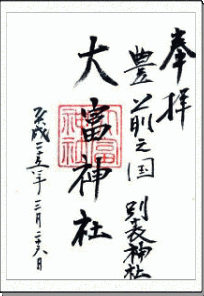 奉拝
豊前之国 別表神社
大富神社
平成二十六年三月二十八日